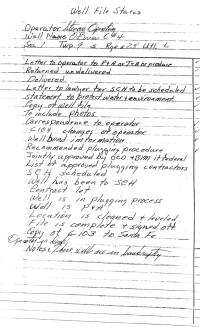 Well File Status
Operator
Well Name O'Brien C #4
Sec. 1 Twp. 9 S Rge 28 Utl. L
Letter to operator to P&A or T&A or produce
Returned undelivered
Delivered
Letter to lawyer for SCH to be scheduled
Statement to protect water & environment
Copy of well file
To include photos
Correspondence to operator
C-104 changes of operator
Well bond information
Recommended plugging procedure
Jointly approved by OCD & BLM if federal
List of approved plugging contractors
SCH scheduled
Well has been to SCH
Contract let
Well is in plugging process
Well is P&A
Location is cleaned & leveled
File is complete & signed off
Copy of C-103 to Santa Fe
Notes: these wells are in bankruptcy